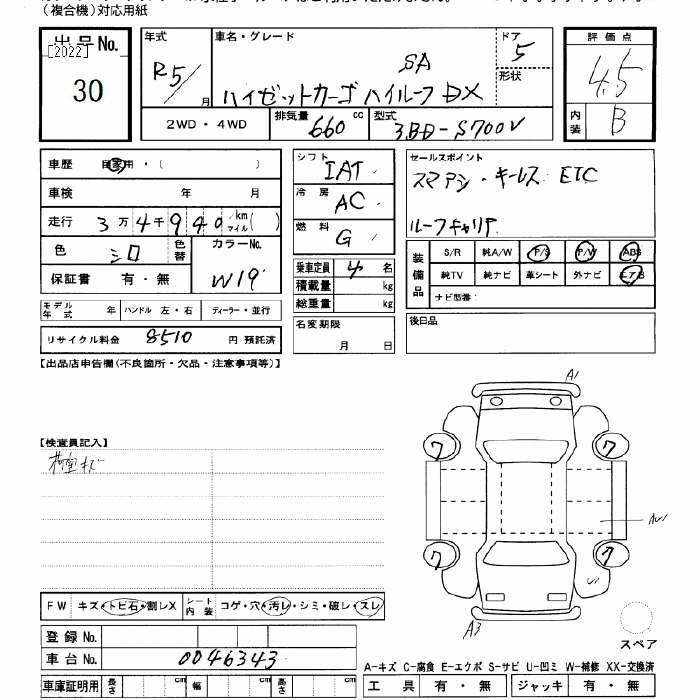 （複合機）対応用紙
出品No.
[2022]
30
年式
R5/
月
車名・グレード
SA
ハイゼットカーゴ ハイルーフ DX
ドア
5
形状
2WD・4WD
排気量
660
cc
型式
3BD-S700V
評価点
4.5
内装
B
車歴
自家用・(　　)
車検
年
月
走行
3万4千940
km
マイル
(　)
色
シロ
色替
カラーNo.
W19
保証書
有・無
モデル年式
年
ハンドル 左・右
ディーラー・並行
リサイクル料金
8510
円 預託済
シフト
IAT
冷房
AC
燃料
G
乗車定員
4
名
積載量
kg
総重量
kg
名変期限
月
日
セールスポイント
スマアシ・キーレス ETC
ルーフキャリア
装備品
S/R
純A/W
P/S
P/W
ABS
純TV
純ナビ
革シート
外ナビ
エアB
ナビ型番:
後日品
【出品店申告欄(不良箇所・欠品・注意事項等)】
【検査員記入】
荷室キズ
A1
7
7
7
7
A3
スペア
FW
キズ・トビ石・割レX
シート内装
コゲ・穴・汚レ・シミ・破レ・スレ
登録No.
車台No.
0046343
車庫証明用
長さ
cm
幅
cm
高さ
cm
A-キズ C-腐食 E-エクボ S-サビ U-凹ミ W-補修 XX-交換済
工具
有・無
ジャッキ
有・無